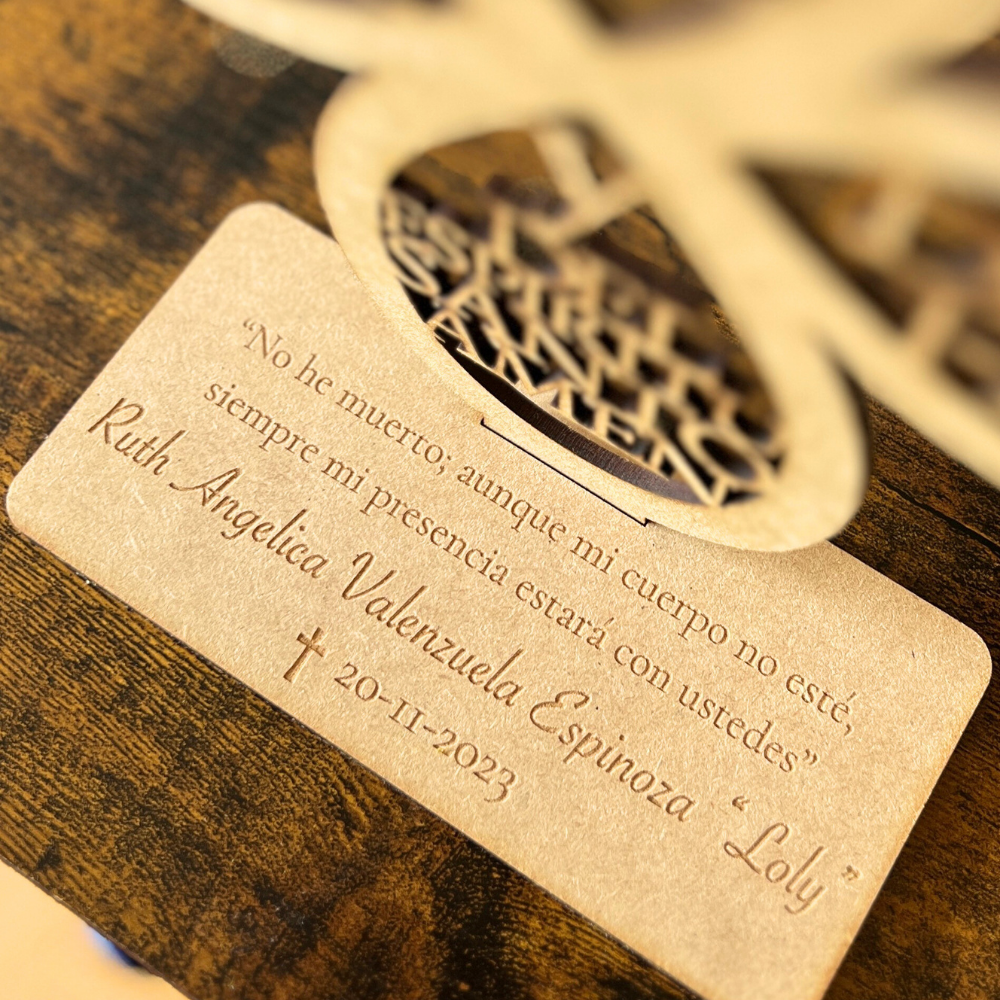 ESPÍRITU
SANTO
AMÉN
“No he muerto; aunque mi cuerpo no esté,
siempre mi presencia estará con ustedes”
Ruth Angelica Valenzuela Espinoza “Loly”
20-11-2023